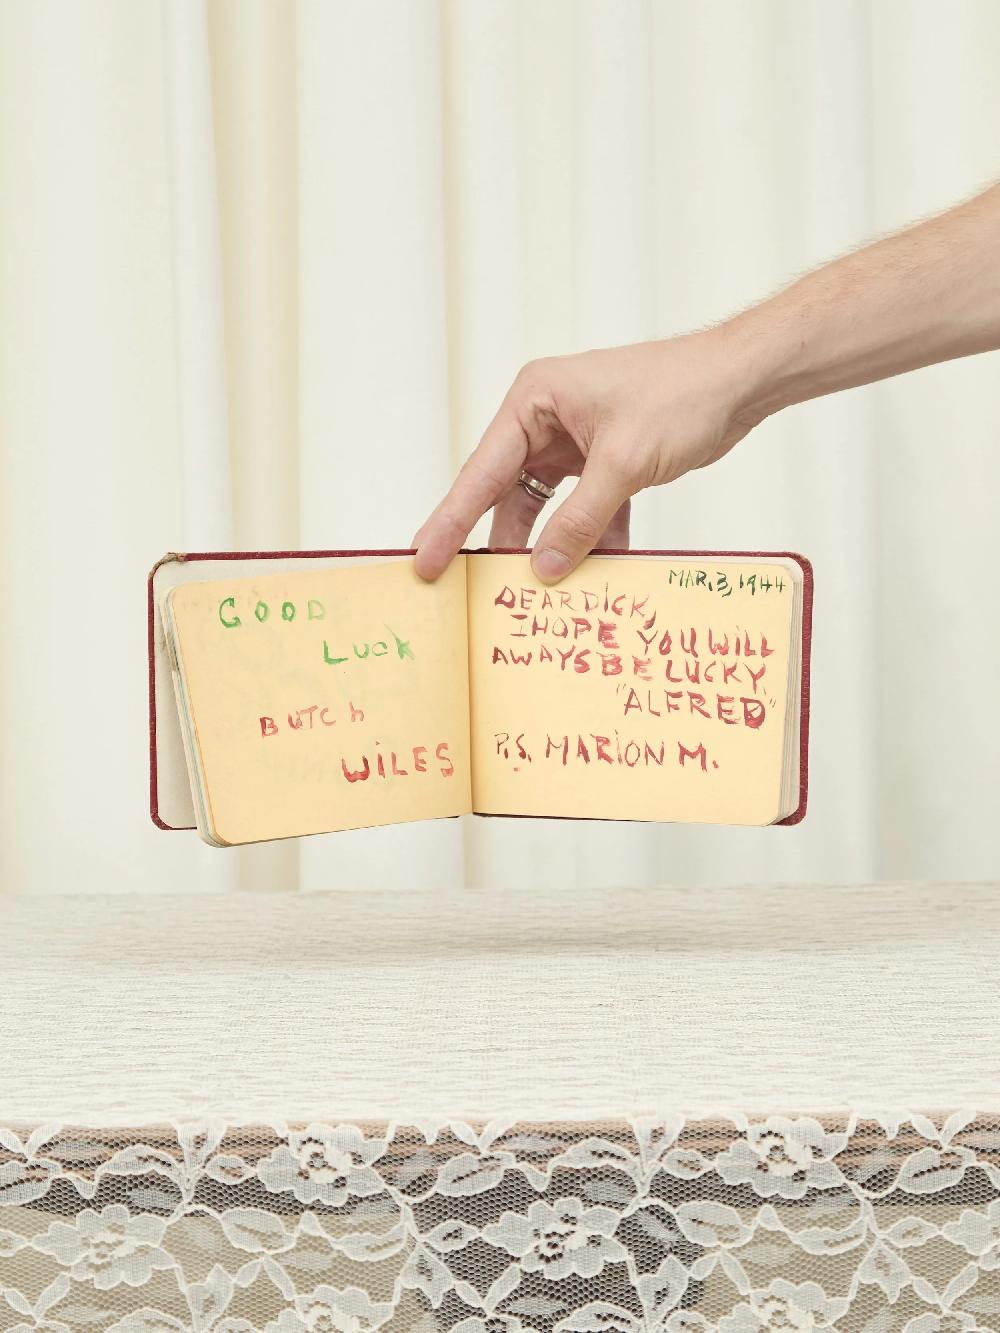 GOOD
LUCK
BUTCh
WiLES
MAR,3,1944
DEAR DiCK,
I HOPE YOU WiLL
AWAYS BE LUCKY.
"ALFRED"
P.S. MARiON M.